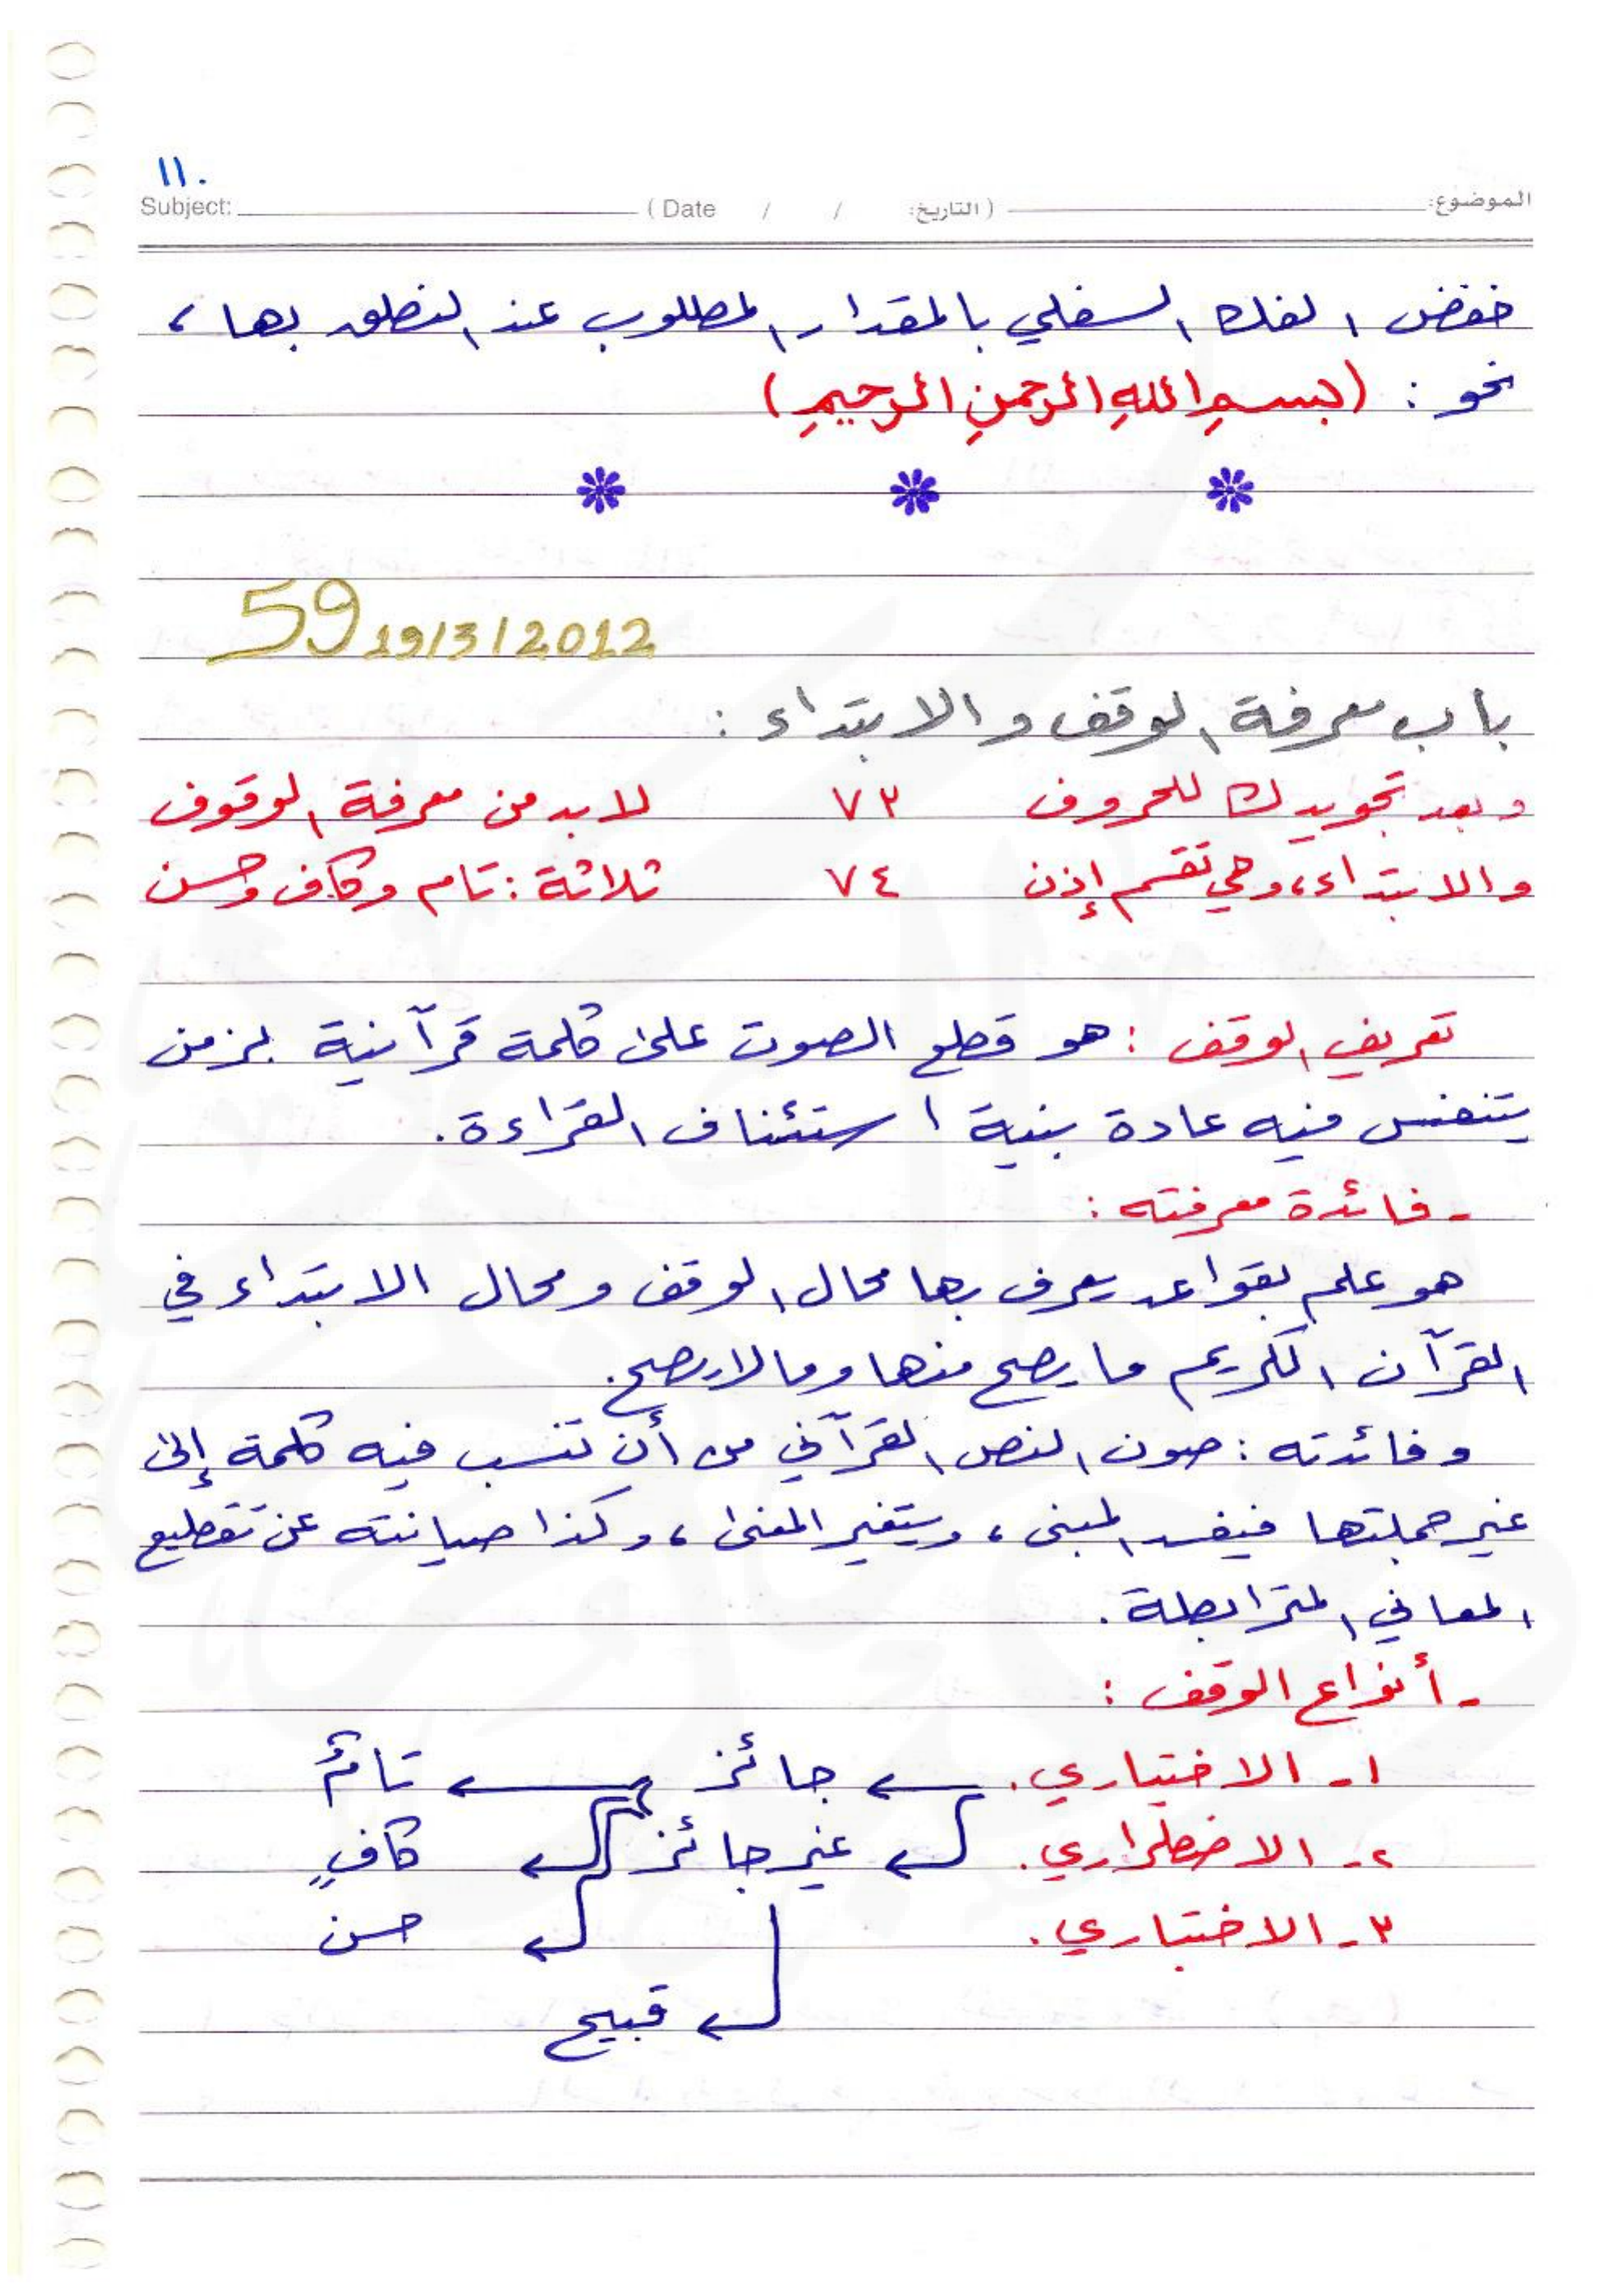 ١١٠
الموضوع: ( التاريخ: / / Date ) Subject:
خفض الفك السفلي بالمقدار المطلوب عند النطق بها ،
نحو : (بسمِ اللهِ الرحمنِ الرحيمِ)
59 19/3/2012
باب معرفة الوقف والابتداء :
وبعد تجويدك للحروف ٧٣ لا بد من معرفة الوقوف
والابتداء، وهي تقسم إذن ٧٤ ثلاثة : تام وكاف وحسن
تعريف الوقف : هو قطع الصوت على كلمة قرآنية بزمن
يتنفس فيه عادة بنية استئناف القراءة .
- فائدة معرفته :
هو علم بقواعد يعرف بها محال الوقف ومحال الابتداء في
القرآن الكريم ما يصح منها وما لا يصح .
وفائدته : صون النص القرآني من أن تنسب فيه كلمة إلى
غير جملتها فيفسد المبنى ، ويتغير المعنى ، وكذا صيانته عن تقطيع
المعاني المترابطة .
- أنواع الوقف :
١- الاختياري . ← جائز ← تامٌّ
٢- الاضطراري . ← غير جائز ← كافٍ
٣- الاختباري . ← حسن
← قبيح